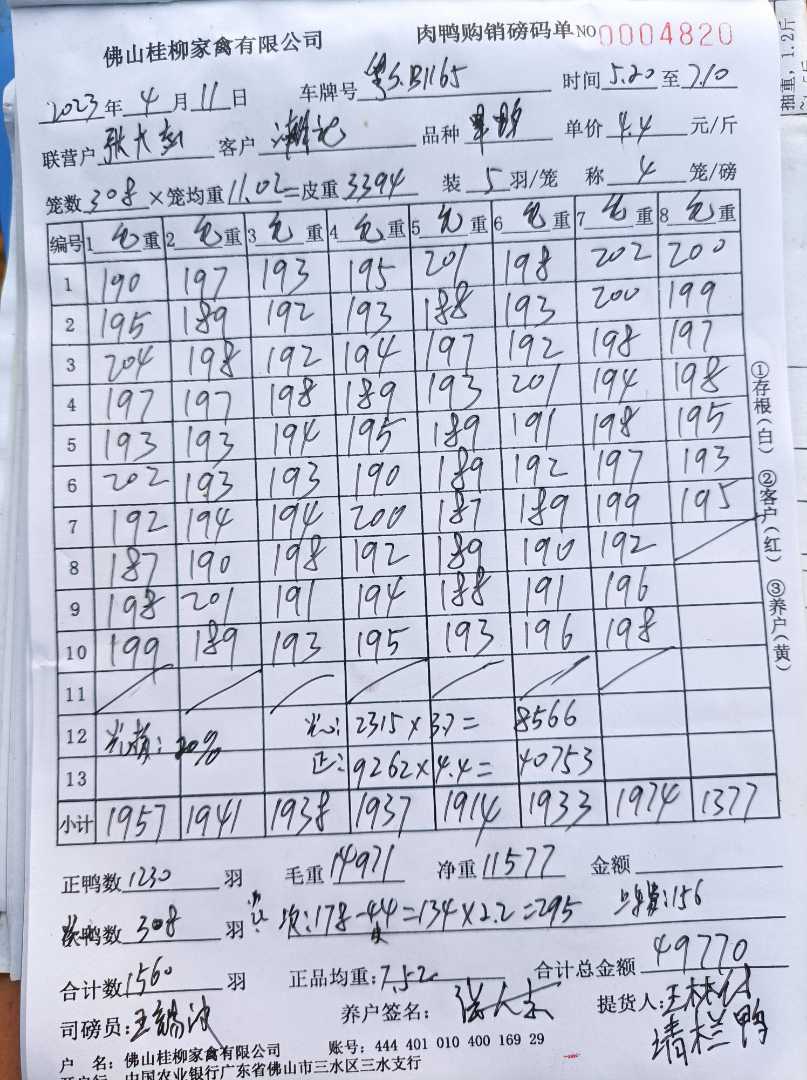 佛山桂柳家禽有限公司 肉鸭购销磅码单 NO 0004820
2023年4月11日 车牌号粤S.B1165 时间5.20至7.10
联营户张大 客户 品种 单价4.4元/斤
笼数308×笼均重11.02=皮重3394 装5羽/笼 称4笼/磅
编号 1毛重 2毛重 3毛重 4毛重 5毛重 6毛重 7毛重 8毛重
1 190 197 193 195 201 198 202 200
2 195 189 192 193 188 193 200 199
3 204 198 192 194 197 192 198 197
4 197 197 198 189 193 201 194 198
5 193 193 194 195 189 191 198 195
6 202 193 193 190 189 192 197 193
7 192 194 194 200 187 189 199 195
8 187 190 198 192 189 190 192
9 198 201 191 194 188 191 196
10 199 189 193 195 193 196 198
11
12 20% 2315×3.7=8566
13 正:9262×4.4=40753
小计 1957 1941 1938 1937 1914 1933 1974 1377
正鸭数1230羽 毛重14971 净重11577 金额
鸭数308羽 次:178-44=134×2.2=295 156
合计数1560羽 正品均重:7.52 合计总金额49770
司磅员:王 养户签名: 提货人:王林
请栏鸭
户 名: 佛山桂柳家禽有限公司 账号: 444 401 010 400 169 29
开户行: 中国农业银行广东省佛山市三水区三水支行
①存根(白) ②客户(红) ③养户(黄)
重, 1.2斤